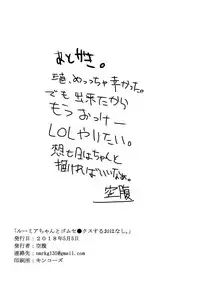 あとがき。
めっちゃ辛かった。
でも出来たから
もうおっけー
LOLやりたい。
想七日はちゃんと
描ければいいなぁ。
空腹
「ルーミアちゃんとゴムセ●クスするおはなし。」
発行日：2018年5月5日
発行者：空腹
連絡先：
印刷所：キンコーズ